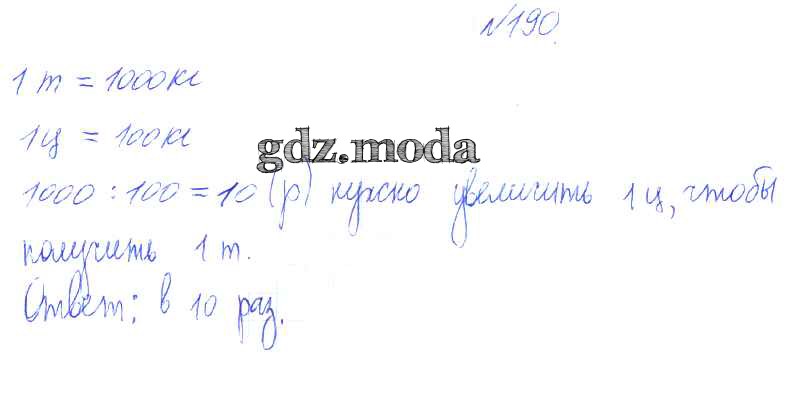 №190.
1 т = 1000 кг
1ц = 100 кг
gdz.moda
1000 : 100 = 10 (р) нужно увеличить 1 ц, чтобы
получить 1 т.
Ответ: в 10 раз.